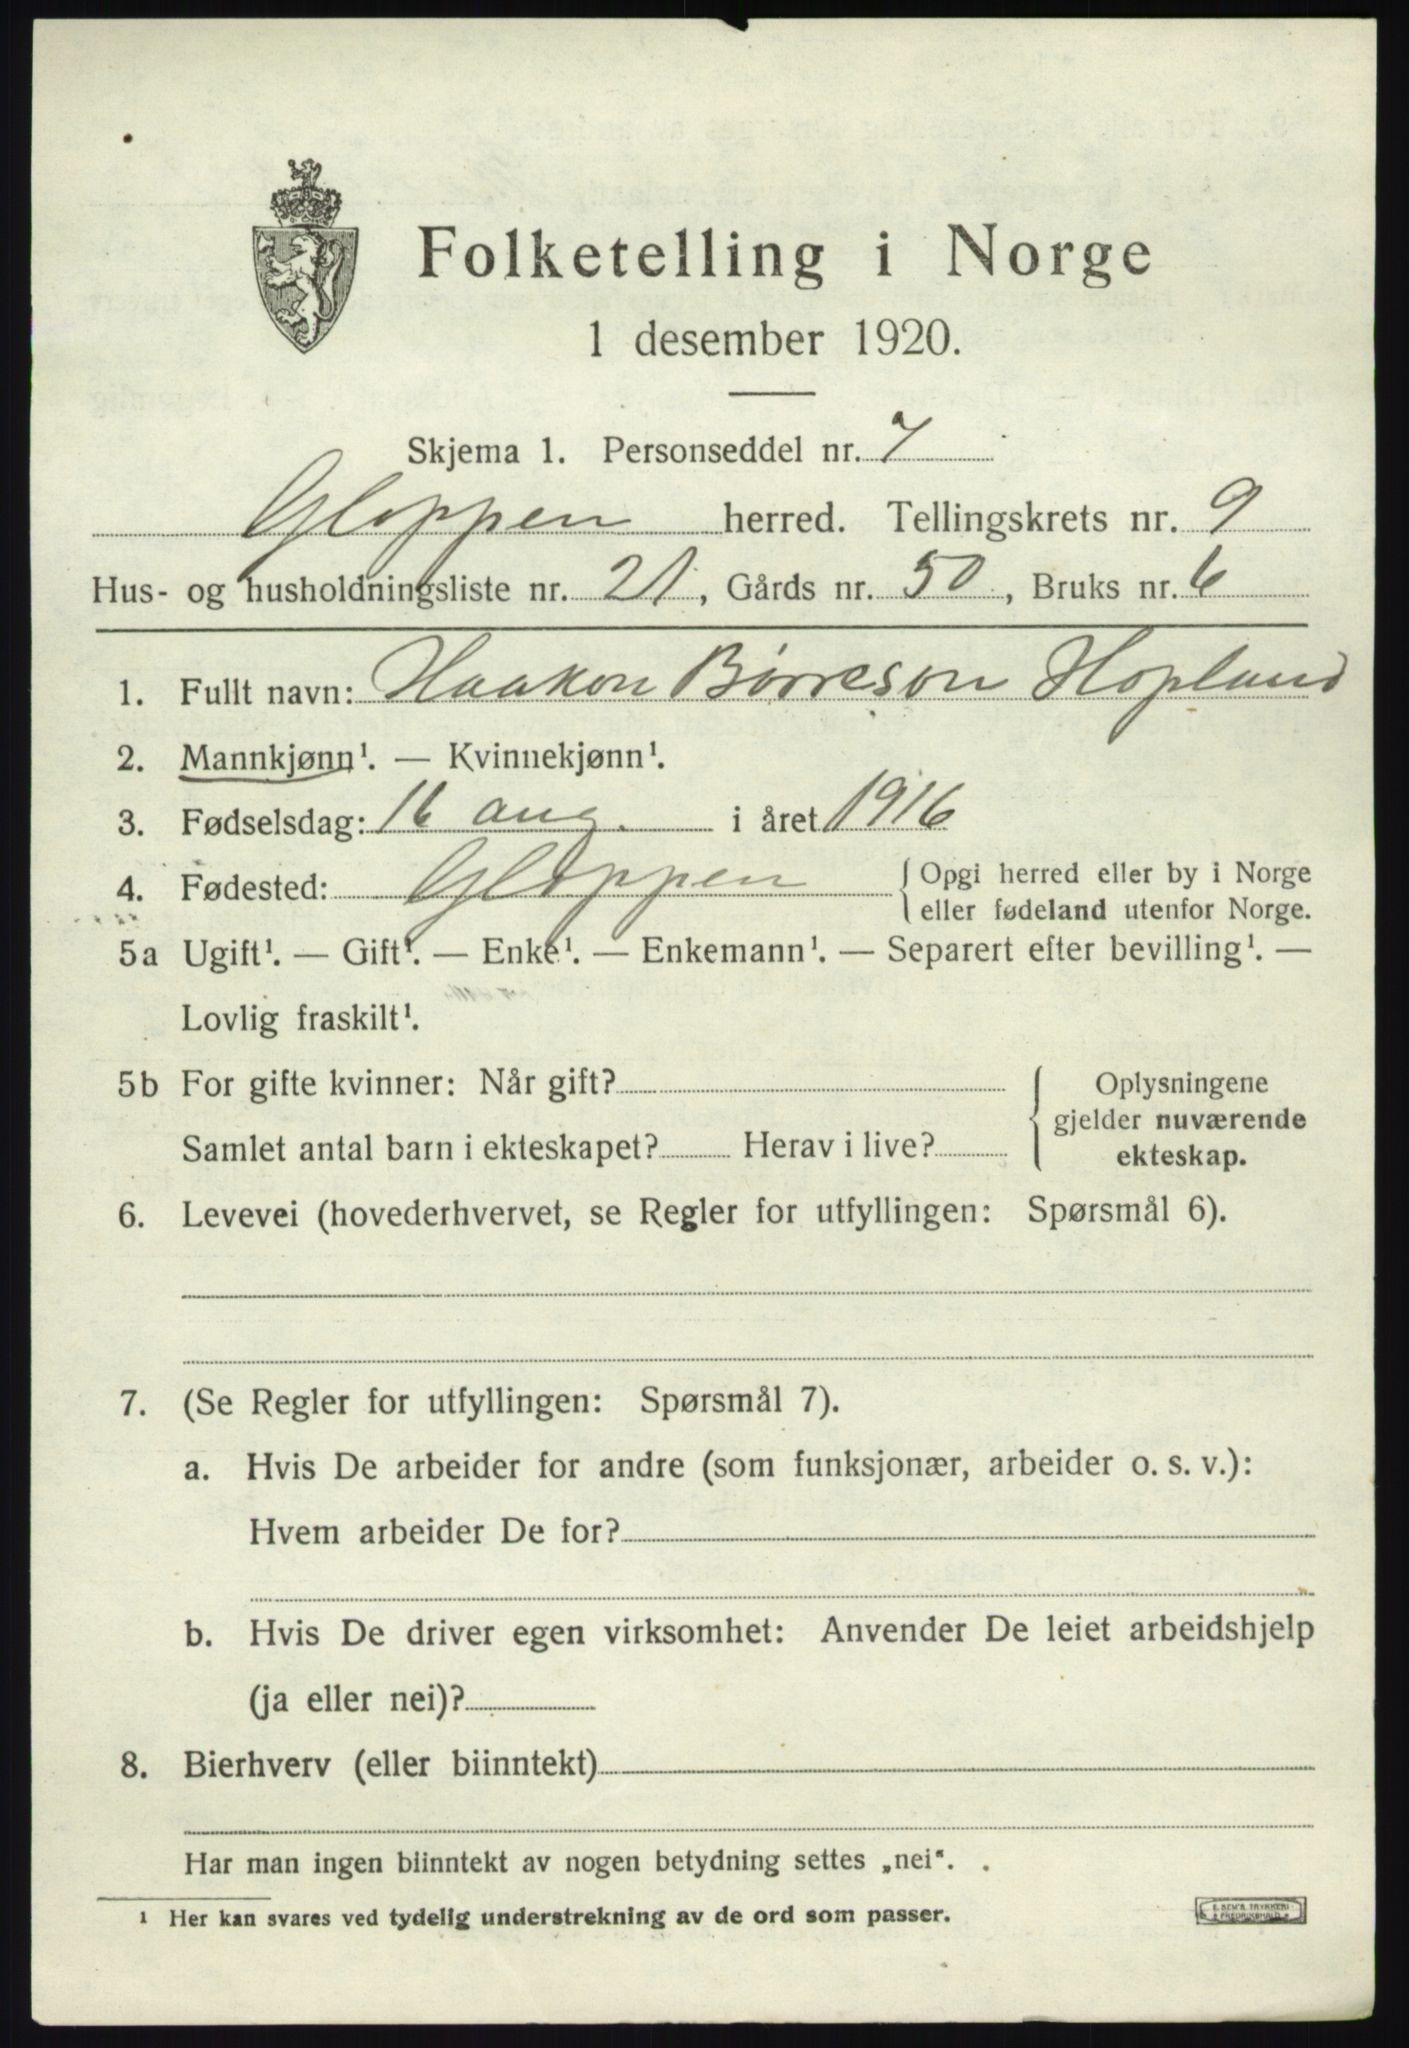 Folketelling i Norge
1 desember 1920.
Skjema 1. Personseddel nr. 7
Gloppen herred. Tellingskrets nr. 9
Hus- og husholdningsliste nr. 21, Gårds nr. 50, Bruks nr. 6
1. Fullt navn: Haakon Børreson Hopland
2. Mannkjønn¹. — Kvinnekjønn¹.
3. Fødselsdag: 16 aug. i året 1916
4. Fødested: Gloppen { Opgi herred eller by i Norge
eller fødeland utenfor Norge.
5a Ugift¹. — Gift¹. — Enke¹. — Enkemann¹. — Separert efter bevilling¹. —
Lovlig fraskilt¹.
5b For gifte kvinner: Når gift? { Oplysningene
gjelder nuværende
Samlet antal barn i ekteskapet? Herav i live?
ekteskap.
6. Levevei (hovederhvervet, se Regler for utfyllingen: Spørsmål 6).
7. (Se Regler for utfyllingen: Spørsmål 7).
a. Hvis De arbeider for andre (som funksjonær, arbeider o. s. v.):
Hvem arbeider De for?
b. Hvis De driver egen virksomhet: Anvender De leiet arbeidshjelp
(ja eller nei)?
8. Bierhverv (eller biinntekt)
Har man ingen biinntekt av nogen betydning settes „nei“.
¹ Her kan svares ved tydelig understrekning av de ord som passer.
E. SEM'S TRYKKERI
FREDRIKSHALD